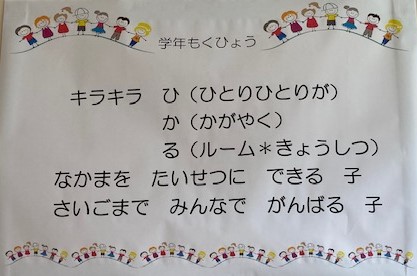 学年もくひょう
キラキラ ひ（ひとりひとりが）
か（かがやく）
る（ルーム＊きょうしつ）
なかまを たいせつに できる 子
さいごまで みんなで がんばる 子